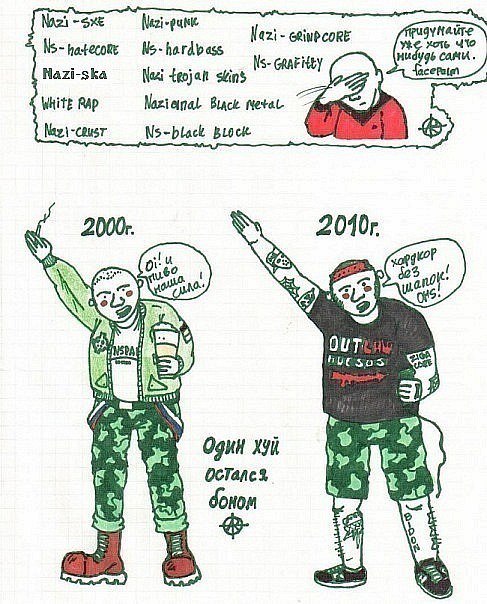 Nazi-SXE
Nazi-punk
Nazi-GRINDCORE
NS-hatecore
NS-hardbass
NS-GRAFITTY
Nazi-ska
Nazi trojan skins
WHITE RAP
Nazional Black Metal
Nazi-CRUST
NS-black BLOCK
ПРИДУМАЙТЕ
УЖЕ ХОТЬ ЧТО
НИБУДЬ САМИ.
facepalm
2000г.
2010г.
Oi! и
пиво
наша
сила!
хардкор
без
шапок!
OHS!
NSDAP
OUTLAW
ZIGA
CORE
Один хуй
остался
боном
BIDON